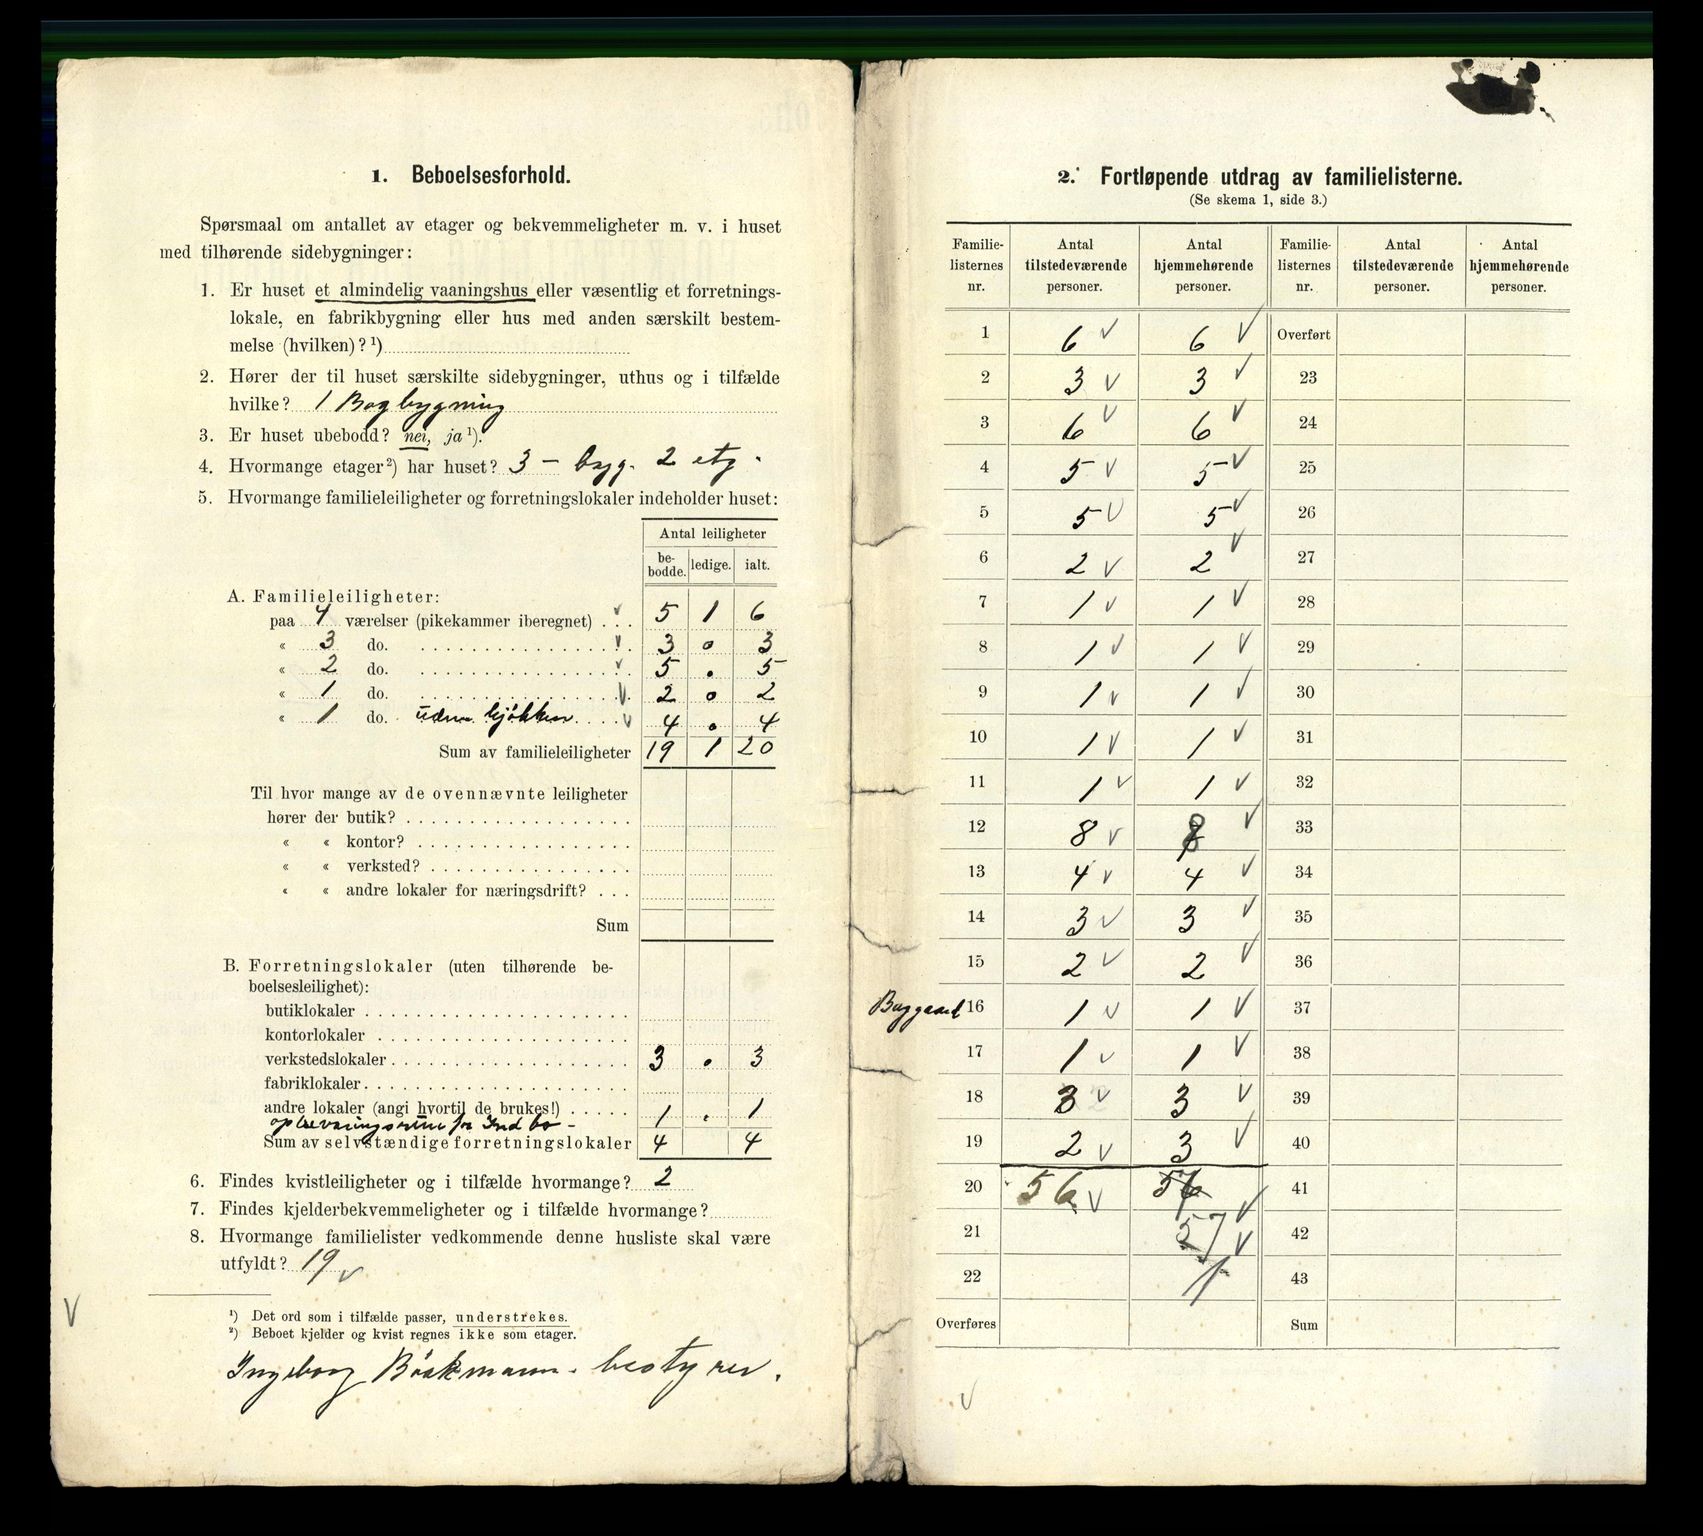 1. Beboelsesforhold.
Spørsmaal om antallet av etager og bekvemmeligheter m. v. i huset
med tilhørende sidebygninger:
1. Er huset et almindelig vaaningshus eller væsentlig et forretnings-
lokale, en fabrikbygning eller hus med anden særskilt bestem-
melse (hvilken)? ¹)
2. Hører der til huset særskilte sidebygninger, uthus og i tilfælde
hvilke? 1 Bagbygning
3. Er huset ubebodd? nei, ja ¹).
4. Hvormange etager ²) har huset? 3 — byg. 2 etg.
5. Hvormange familieleiligheter og forretningslokaler indeholder huset:
Antal leiligheter
be-bodde. ledige. ialt.
A. Familieleiligheter:
paa 4 værelser (pikekammer iberegnet) . . . 5 1 6
« 3 do. 3 0 3
« 2 do. 5 . 5
« 1 do. 2 0 2
« 1 do. uden kjøkken 4 . 4
Sum av familieleiligheter 19 1 20
Til hvor mange av de ovennævnte leiligheter
hører der butik?
« « kontor?
« « verksted?
« « andre lokaler for næringsdrift?
Sum
B. Forretningslokaler (uten tilhørende be-
boelsesleilighet):
butiklokaler
kontorlokaler
verkstedslokaler 3 . 3
fabriklokaler
andre lokaler (angi hvortil de brukes!) 1 . 1
Sum av selvstændige forretningslokaler 4 4
6. Findes kvistleiligheter og i tilfælde hvormange? 2
7. Findes kjelderbekvemmeligheter og i tilfælde hvormange?
8. Hvormange familielister vedkommende denne husliste skal være
utfyldt? 19
¹) Det ord som i tilfælde passer, understrekes.
²) Beboet kjelder og kvist regnes ikke som etager.
Ingeborg Böckmann. bestyrer.
2. Fortløpende utdrag av familielisterne.
(Se skema 1, side 3.)
Familie-listernes nr. Antal tilstedeværende personer. Antal hjemmehørende personer. Familie-listernes nr. Antal tilstedeværende personer. Antal hjemmehørende personer.
1 6 6 Overført
2 3 3 23
3 6 6 24
4 5 5 25
5 5 5 26
6 2 2 27
7 1 1 28
8 1 1 29
9 1 1 30
10 1 1 31
11 1 1 32
12 8 8 33
13 4 4 34
14 3 3 35
15 2 2 36
Baggaard 16 1 1 37
17 1 1 38
18 3 3 39
19 2 3 40
20 56 56 41
21 57 42
22 1 43
Overføres Sum